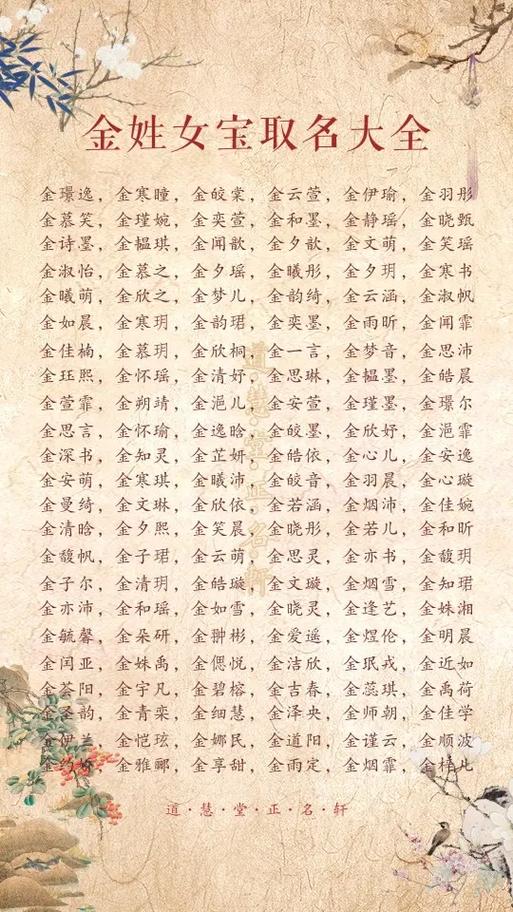 金姓女宝取名大全
金璟逸，金寒瞳，金皎棠，金云萱，金伊瑜，金羽彤
金慕笑，金瑾婉，金奕萱，金和墨，金静瑶，金晓甄
金诗墨，金韫琪，金闻歆，金夕歆，金文萌，金笑瑶
金淑怡，金慕之，金夕瑶，金曦彤，金夕玥，金寒书
金曦萌，金欣之，金梦儿，金韵绮，金云涵，金淑帆
金如晨，金寒玥，金韵珺，金奕墨，金雨昕，金闻霏
金佳楠，金慕玥，金欣桐，金一言，金梦音，金思沛
金珏熙，金怀瑶，金清妤，金思琳，金韫墨，金皓晨
金萱霏，金朔靖，金浥儿，金安萱，金瑾墨，金璟尔
金思言，金怀瑜，金逸晗，金皎墨，金欣妤，金浥霏
金深书，金知灵，金芷妍，金皓依，金心儿，金安逸
金安萌，金寒琪，金曦沛，金皎音，金羽晨，金心璇
金曼绮，金文琳，金欣依，金若涵，金烟沛，金佳婉
金清晗，金夕熙，金笑晨，金晓彤，金若儿，金和昕
金馥帆，金子珺，金云萌，金思灵，金亦书，金馥玥
金子尔，金清玥，金皓璇，金文璇，金烟雪，金知珺
金亦沛，金和瑶，金如雪，金晓灵，金逢艺，金姝湘
金毓馨，金朵研，金翀彬，金爱遥，金煜伦，金明晨
金闰亚，金姝禹，金偲悦，金洁欣，金珉戎，金近如
金荟阳，金宇凡，金碧榕，金吉春，金蕊琪，金禹荷
金圣韵，金青栾，金细慧，金泽央，金师朝，金佳学
金伊兰，金恺玹，金娜民，金道阳，金谨云，金顺波
金约娇，金雅郦，金享甜，金雨定，金烟霏，金梓儿
道·慧·堂·正·名·轩
道慧堂正名轩